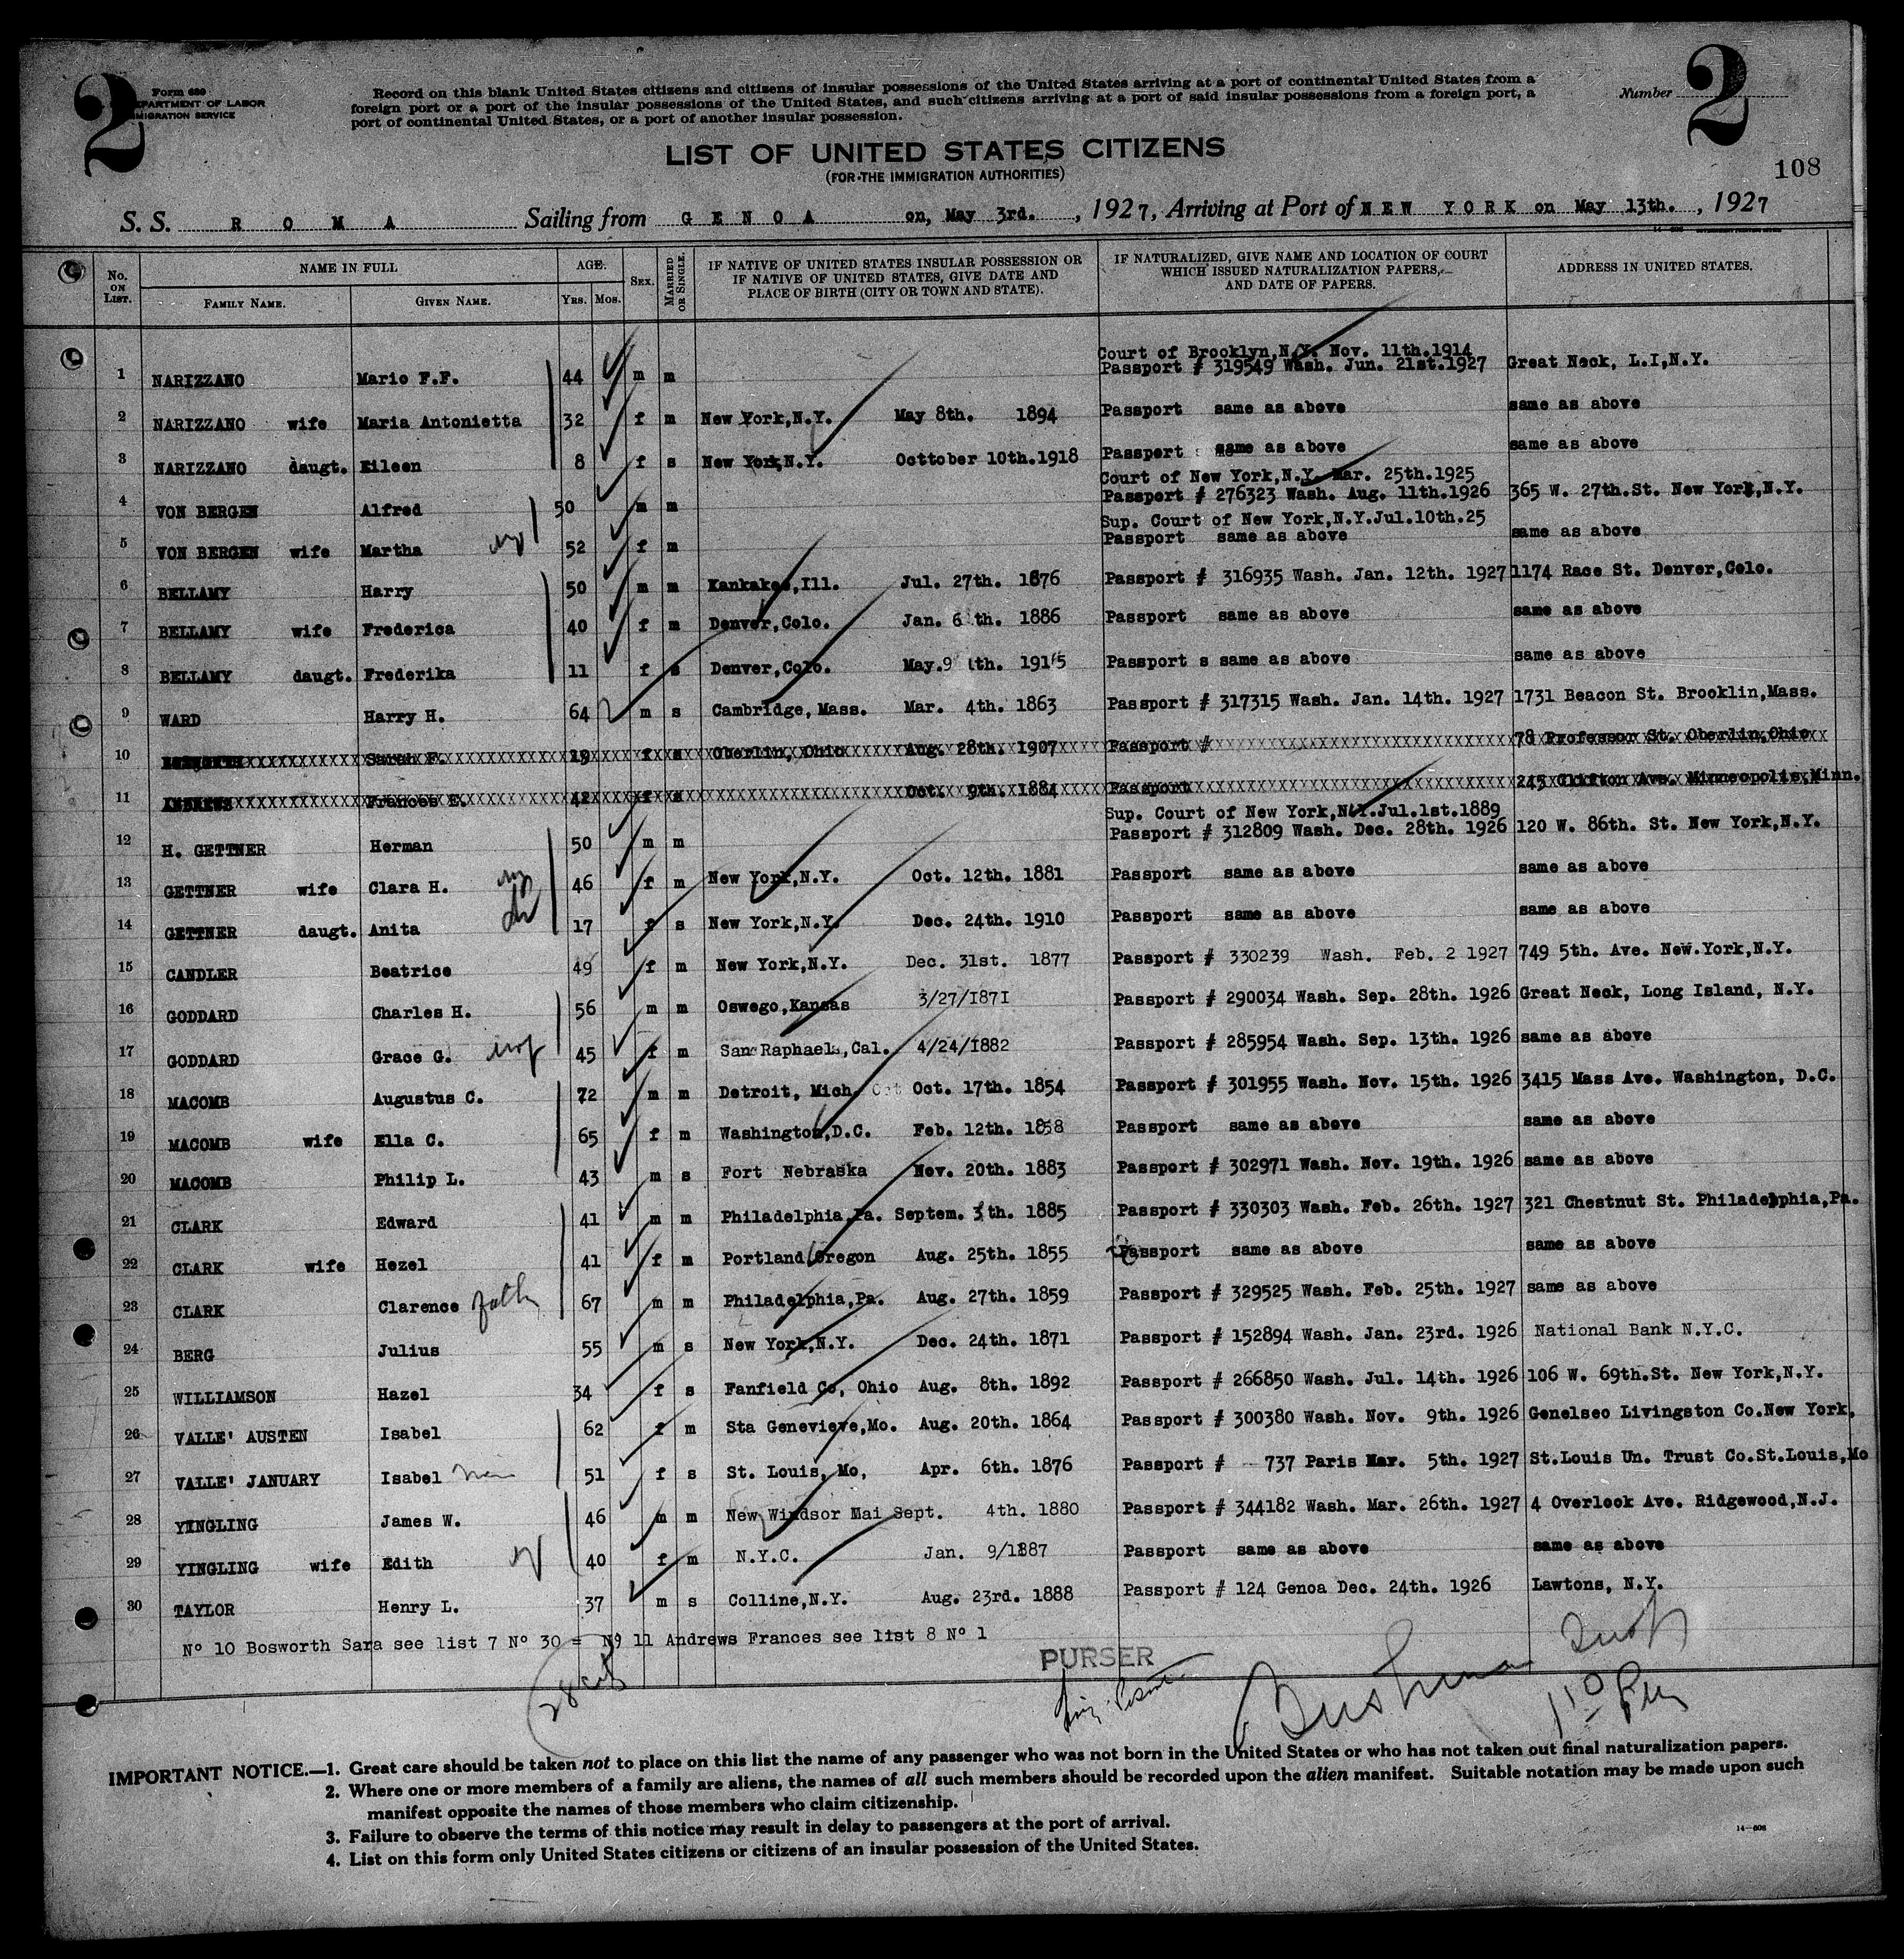 2
Form 630
DEPARTMENT OF LABOR
IMMIGRATION SERVICE
Record on this blank United States citizens and citizens of insular possessions of the United States arriving at a port of continental United States from a
foreign port or a port of the insular possessions of the United States, and such citizens arriving at a port of said insular possessions from a foreign port, a
port of continental United States, or a port of another insular possession.
Number 2
LIST OF UNITED STATES CITIZENS
(FOR THE IMMIGRATION AUTHORITIES)
108
S. S. R O M A Sailing from G E N O A on, May 3rd. , 1927, Arriving at Port of NEW YORK on May 13th. , 1927
No. ON LIST. NAME IN FULL FAMILY NAME. GIVEN NAME. AGE. YRS. MOS. SEX. MARRIED OR SINGLE. IF NATIVE OF UNITED STATES INSULAR POSSESSION OR IF NATIVE OF UNITED STATES, GIVE DATE AND PLACE OF BIRTH (CITY OR TOWN AND STATE). IF NATURALIZED, GIVE NAME AND LOCATION OF COURT WHICH ISSUED NATURALIZATION PAPERS, AND DATE OF PAPERS. ADDRESS IN UNITED STATES.
Court of Brooklyn,N.Y. Nov. 11th.1914
1 NARIZZANO Mario F.F. 44 m m Passport # 319549 Wash. Jun. 21st.1927 Great Neck, L.I,N.Y.
2 NARIZZANO wife Maria Antonietta 32 f m New York,N.Y. May 8th. 1894 Passport same as above same as above
3 NARIZZANO daugt. Eileen 8 f s New York,N.Y. Octtober 10th.1918 Passport same as above same as above
Court of New York,N.Y. Mar. 25th.1925
4 VON BERGEN Alfred 50 m m Passport # 276323 Wash. Aug. 11th.1926 365 W. 27th.St. New York,N.Y.
Sup. Court of New York,N.Y.Jul.10th.25
5 VON BERGEN wife Martha 52 f m Passport same as above same as above
6 BELLAMY Harry 50 m m Kankakee,Ill. Jul. 27th. 1876 Passport # 316935 Wash. Jan. 12th. 1927 1174 Race St. Denver,Colo.
7 BELLAMY wife Frederica 40 f m Denver,Colo. Jan. 6 th. 1886 Passport same as above same as above
8 BELLAMY daugt. Frederika 11 f s Denver,Colo. May.9 th. 1915 Passport s same as above same as above
9 WARD Harry H. 64 m s Cambridge, Mass. Mar. 4th. 1863 Passport # 317315 Wash. Jan. 14th. 1927 1731 Beacon St. Brooklin,Mass.
10 BOSWORTH Sarah F. 19 f s Oberlin, Ohio Aug. 28th. 1907 Passport # 78 Professor St. Oberlin,Ohio
11 ANDREWS Frances E. 42 f s Oct. 9th. 1884 Passport 245 Clifton Ave. Minneopolis,Minn.
Sup. Court of New York,N.Y.Jul.1st.1889
12 H. GETTNER Herman 50 m m Passport # 312809 Wash. Dec. 28th. 1926 120 W. 86th. St. New York,N.Y.
13 GETTNER wife Clara H. 46 f m New York,N.Y. Oct. 12th. 1881 Passport same as above same as above
14 GETTNER daugt. Anita 17 f s New York,N.Y. Dec. 24th. 1910 Passport same as above same as above
15 CANDLER Beatrice 49 f m New York,N.Y. Dec. 31st. 1877 Passport # 330239 Wash. Feb. 2 1927 749 5th. Ave. New.York,N.Y.
16 GODDARD Charles H. 56 m m Oswego,Kansas 3/27/1871 Passport # 290034 Wash. Sep. 28th. 1926 Great Neck, Long Island, N.Y.
17 GODDARD Grace G. wif 45 f m San Raphaels,Cal. 4/24/1882 Passport # 285954 Wash. Sep. 13th. 1926 same as above
18 MACOMB Augustus C. 72 m m Detroit, Mich. Oct. 17th. 1854 Passport # 301955 Wash. Nov. 15th. 1926 3415 Mass Ave. Washington, D.C.
19 MACOMB wife Ella C. 65 f m Washington,D.C. Feb. 12th. 1858 Passport same as above same as above
20 MACOMB Philip L. 43 m s Fort Nebraska Nov. 20th. 1883 Passport # 302971 Wash. Nov. 19th. 1926 same as above
21 CLARK Edward 41 m m Philadelphia,Pa. Septem. 3th. 1885 Passport # 330303 Wash. Feb. 26th. 1927 321 Chestnut St. Philadelphia,Pa.
22 CLARK wife Hezel 41 f m Portland Oregon Aug. 25th. 1855 Passport same as above same as above
23 CLARK Clarence Fath 67 m m Philadelphia,Pa. Aug. 27th. 1859 Passport # 329525 Wash. Feb. 25th. 1927 same as above
24 BERG Julius 55 m s New York,N.Y. Dec. 24th. 1871 Passport # 152894 Wash. Jan. 23rd. 1926 National Bank N.Y.C.
25 WILLIAMSON Hazel 34 f s Fanfield Co, Ohio Aug. 8th. 1892 Passport # 266850 Wash. Jul. 14th. 1926 106 W. 69th.St. New York,N.Y.
26 VALLE' AUSTEN Isabel 62 f m Sta Genevieve,Mo. Aug. 20th. 1864 Passport # 300380 Wash. Nov. 9th. 1926 Genelseo Livingston Co.New York,
27 VALLE' JANUARY Isabel 51 f s St. Louis, Mo, Apr. 6th. 1876 Passport # 737 Paris Mar. 5th. 1927 St.Louis Un. Trust Co.St.Louis,Mo
28 YINGLING James W. 46 m m New Windsor Mai Sept. 4th. 1880 Passport # 344182 Wash. Mar. 26th. 1927 4 Overlook Ave. Ridgewood,N.J.
29 YINGLING wife Edith 40 f m N.Y.C. Jan. 9/1887 Passport same as above same as above
30 TAYLOR Henry L. 37 m s Colline,N.Y. Aug. 23rd. 1888 Passport # 124 Genoa Dec. 24th. 1926 Lawtons, N.Y.
Nº 10 Bosworth Sara see list 7 Nº 30 = Nº 11 Andrews Frances see list 8 Nº 1
PURSER
IMPORTANT NOTICE.—1. Great care should be taken not to place on this list the name of any passenger who was not born in the United States or who has not taken out final naturalization papers.
2. Where one or more members of a family are aliens, the names of all such members should be recorded upon the alien manifest. Suitable notation may be made upon such
manifest opposite the names of those members who claim citizenship.
3. Failure to observe the terms of this notice may result in delay to passengers at the port of arrival.
4. List on this form only United States citizens or citizens of an insular possession of the United States.
14—608